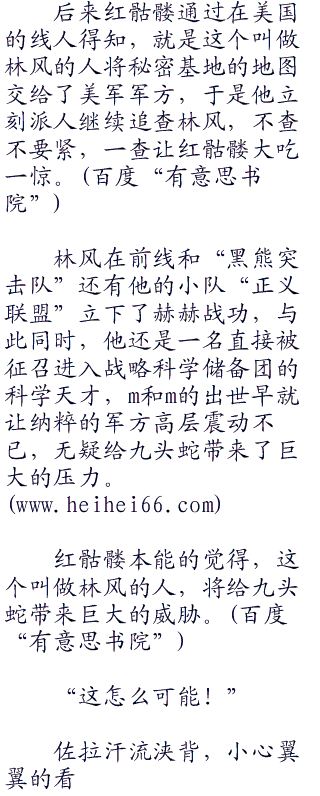 后来红骷髅通过在美国
的线人得知，就是这个叫做
林风的人将秘密基地的地图
交给了美军军方，于是他立
刻派人继续追查林风，不查
不要紧，一查让红骷髅大吃
一惊。(百度“有意思书
院”)
林风在前线和“黑熊突
击队”还有他的小队“正义
联盟”立下了赫赫战功，与
此同时，他还是一名直接被
征召进入战略科学储备团的
科学天才，m和m的出世早就
让纳粹的军方高层震动不
已，无疑给九头蛇带来了巨
大的压力。
(www.heihei66.com)
红骷髅本能的觉得，这
个叫做林风的人，将给九头
蛇带来巨大的威胁。(百度
“有意思书院”)
“这怎么可能！”
佐拉汗流浃背，小心翼
翼的看